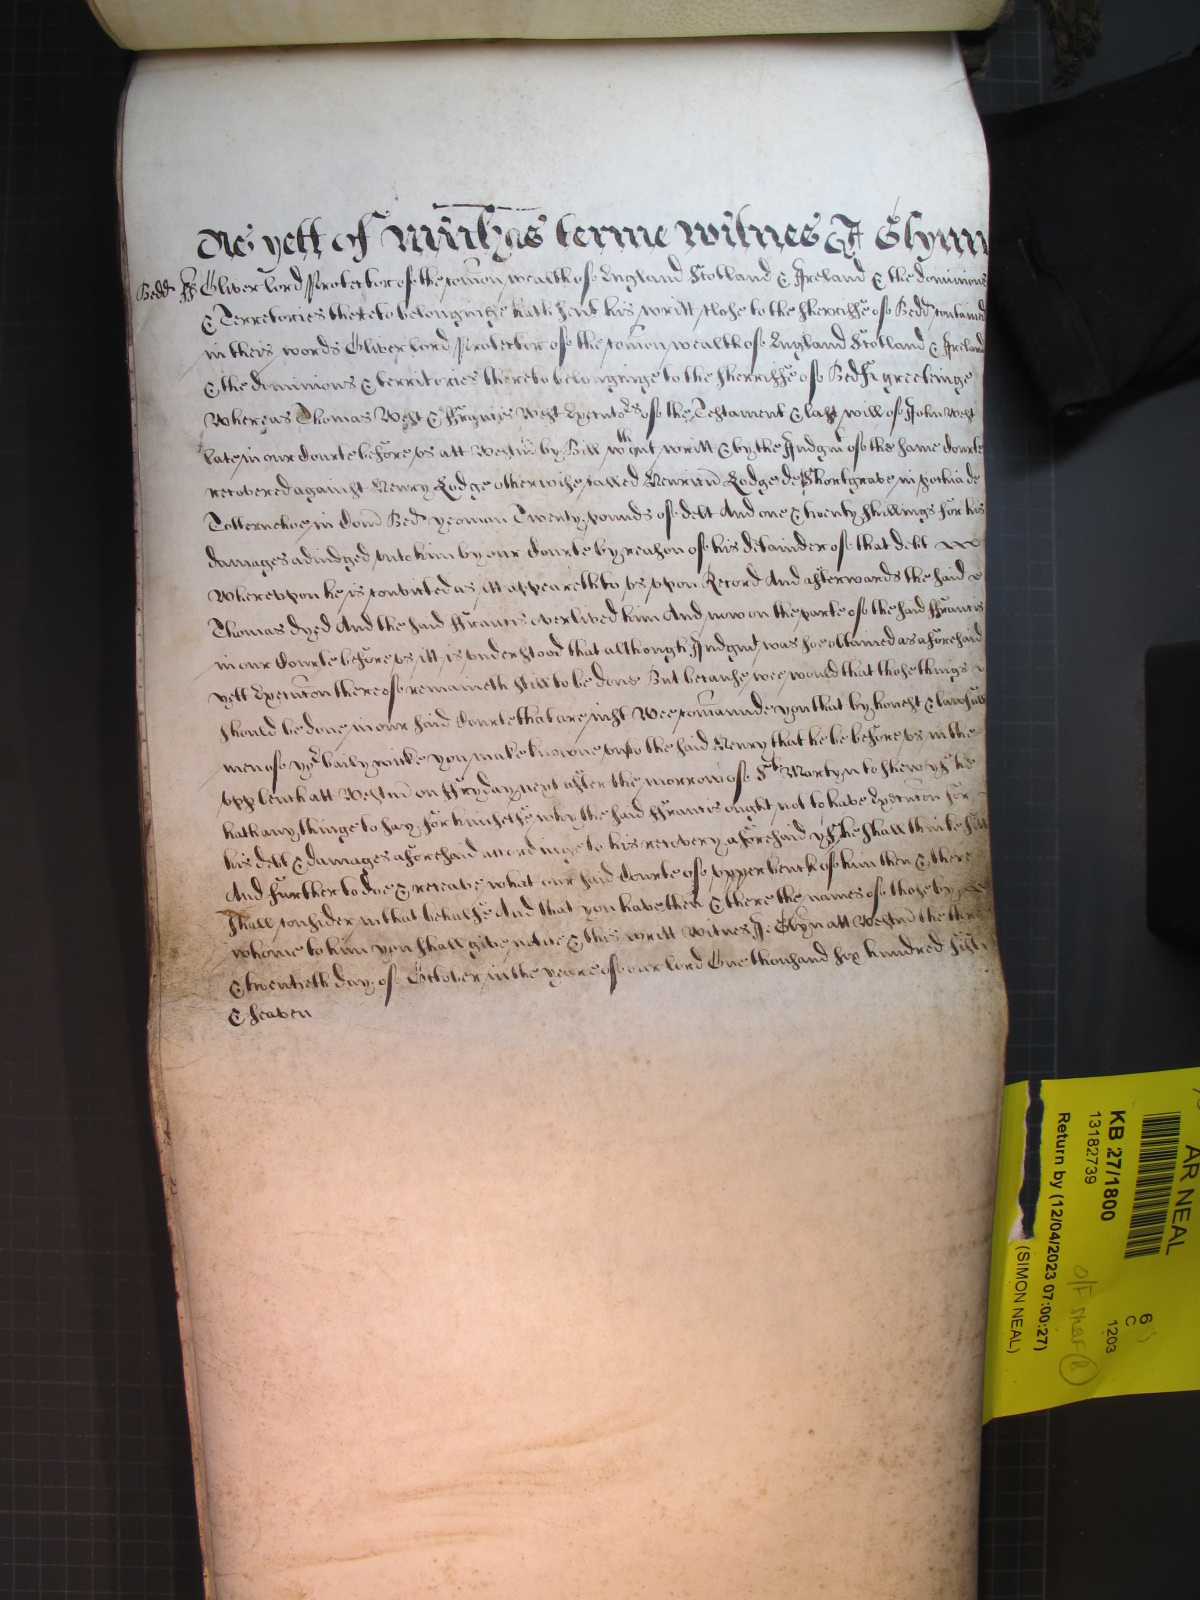 As yett of Mich̃as terme witnes J Glynn
Bedd ss Oliver lord Protector of the com̃on wealth of England Scotland & Ireland & the dominions
& Territories thereto belonginge hath sent his writt close to the sherriffe of Bedd contained
in theis words Oliver lord Protector of the com̃on wealth of England Scotland & Ireland
& the dominions & territories thereto belonginge to the sherriffe of Bedf greetinge
Whereas Thomas West & Francis West Executors of the Testament & last will of John West
late in our Courte before us att Westm̃ by Bill wthout writt & by the Judgmt of the same Courte
recovered against Henry Lodge otherwise called Henricũ Lodge de Shortgrave in pochia de
Totternehoe in Com̃ Bed yeoman Twenty pounds of debt And one & twenty shillings for his
damages adiudged unto him by our Courte by reason of his detainder of that debt
Whereupon he is convicted as itt appeareth to us upon Record And afterwards the said
Thomas dyed And the said Francis overlived him And now on the parte of the said Francis
in our Courte before us itt is understood that although Judgmt was soe obtained as aforesaid
yett Execuc̃on thereof remaineth still to be done But because wee would that those things
should be done in our said Courte that are just Wee com̃aunde you that by honest & lawfull
men of yor bailywicke you make knowne unto the said Henry that he be before us in the
upp bench att Westm̃ on Fryday next after the morrow of St Martyn to shew yf he
hath any thinge to say for himselfe why the said Francis ought not to have Execuc̃on for
his debt & damages aforesaid accordinge to his recovery aforesaid yf he shall thinke fitt
And further to doe & receave what our said Courte of upper bench of him then & there
shall consider in that behalfe And that you have then & there the names of those by
whome to him you shall give notice & this writt Witnes J: Glynn att Westm̃ the three
& twentieth day of October in the yeare of our lord One thousand six hundred fifty
& seaven
AR NEAL
KB 27/1800
13182739
Return by (12/04/2023 07:00:27)
(SIMON NEAL)
6
C
1203